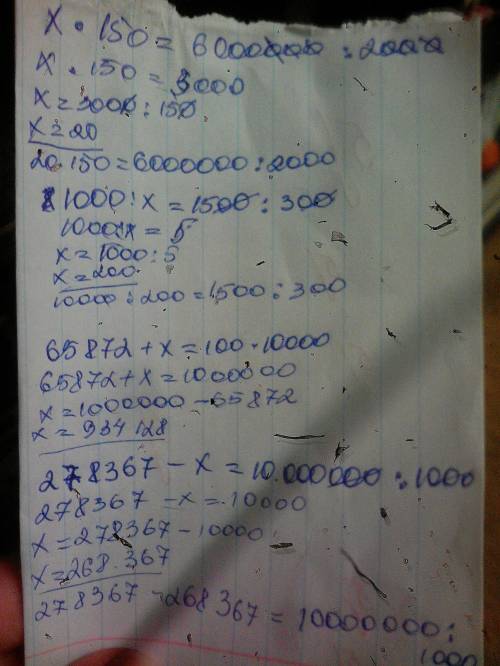 x · 150 = 6000000 : 2000
x · 150 = 3000
x = 3000 : 150
x = 20
20 · 150 = 6000000 : 2000
1000 : x = 1500 : 300
1000 : x = 5
x = 1000 : 5
x = 200
1000 : 200 = 1500 : 300
65872 + x = 100 · 10000
65872 + x = 1000000
x = 1000000 - 65872
x = 934128
278367 - x = 10.000000 : 1000
278367 - x = 10000
x = 278367 - 10000
x = 268.367
278367 - 268367 = 10000000 :
1000